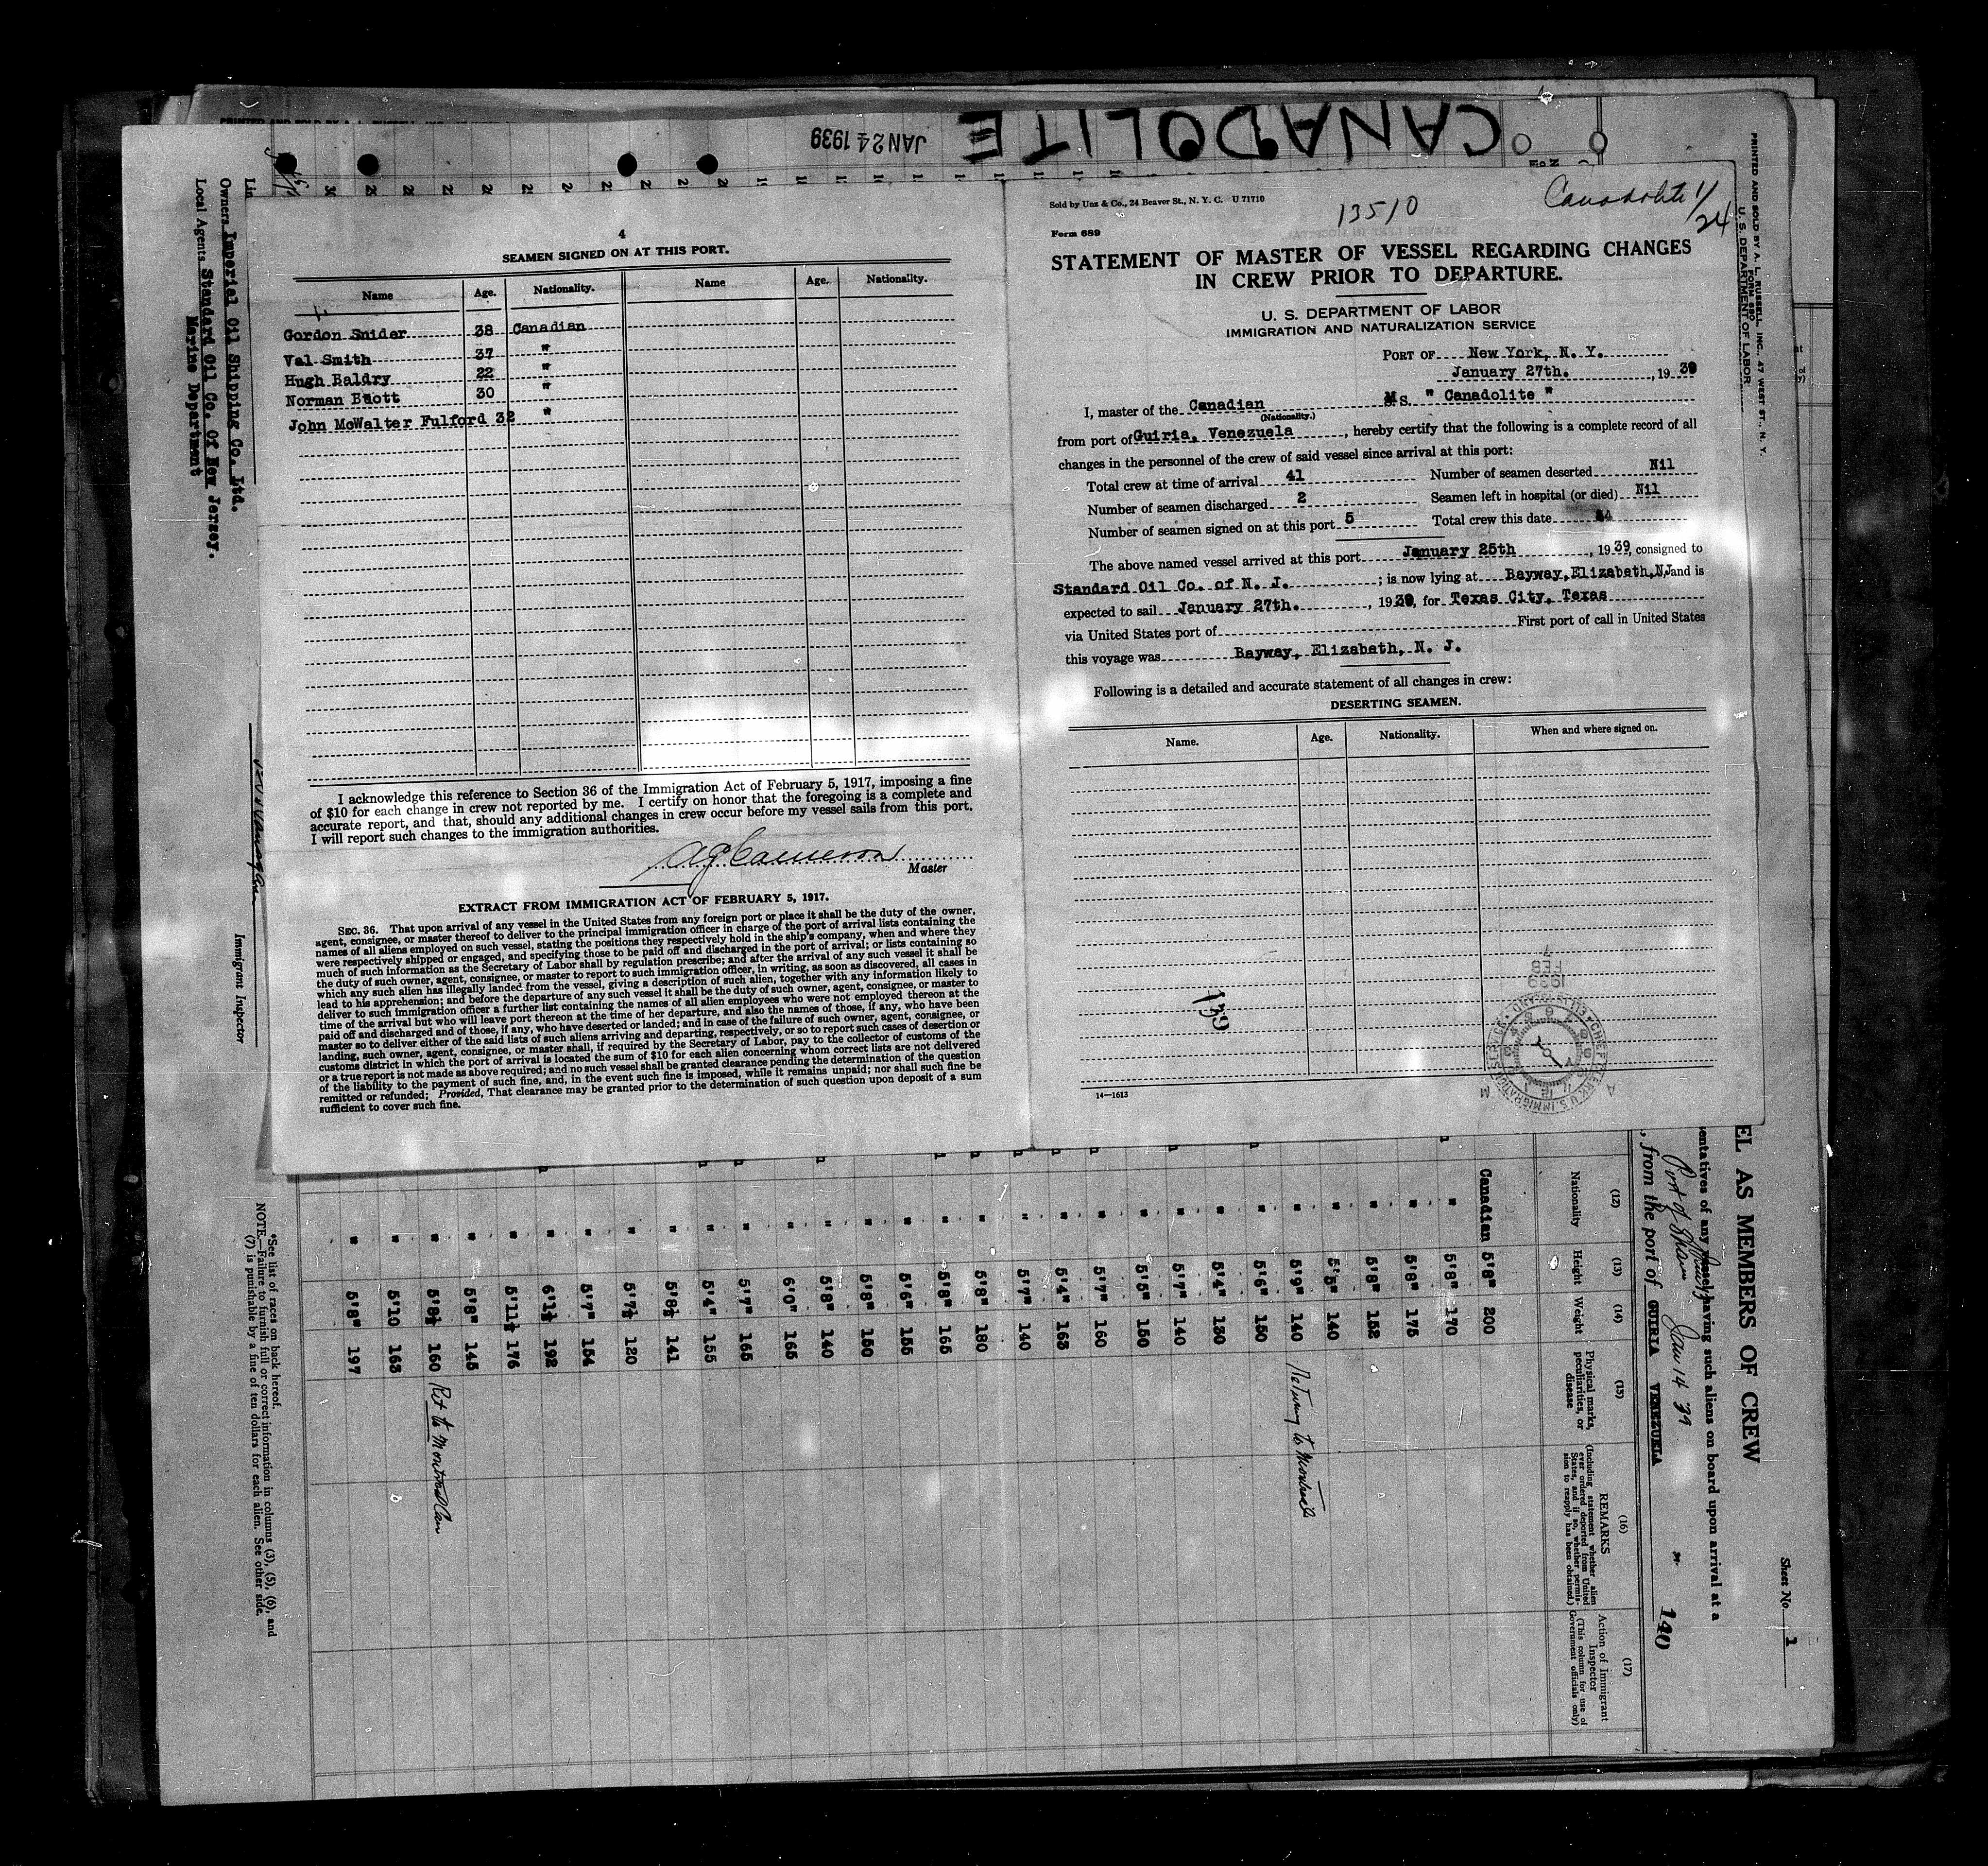 CANADOLITE
JAN 24 1939
4
SEAMEN SIGNED ON AT THIS PORT.
Name Age. Nationality. Name Age. Nationality.
Gordon Snider 38 Canadian
Val Smith 37 "
Hugh Baldry 22 "
Norman 30 "
John McWalter Fulford 32 "
I acknowledge this reference to Section 36 of the Immigration Act of February 5, 1917, imposing a fine
of $10 for each change in crew not reported by me. I certify on honor that the foregoing is a complete and
accurate report, and that, should any additional changes in crew occur before my vessel sails from this port,
I will report such changes to the immigration authorities.
Cameron
Master
EXTRACT FROM IMMIGRATION ACT OF FEBRUARY 5, 1917.
SEC. 36. That upon arrival of any vessel in the United States from any foreign port or place it shall be the duty of the owner,
agent, consignee, or master thereof to deliver to the principal immigration officer in charge of the port of arrival lists containing the
names of all aliens employed on such vessel, stating the positions they respectively hold in the ship's company, when and where they
were respectively shipped or engaged, and specifying those to be paid off and discharged in the port of arrival; or lists containing so
much of such information as the Secretary of Labor shall by regulation prescribe; and after the arrival of any such vessel it shall be
the duty of such owner, agent, consignee, or master to report to such immigration officer, in writing, as soon as discovered, all cases in
which any such alien has illegally landed from the vessel, giving a description of such alien, together with any information likely to
lead to his apprehension; and before the departure of any such vessel it shall be the duty of such owner, agent, consignee, or master to
deliver to such immigration officer a further list containing the names of all alien employees who were not employed thereon at the
time of the arrival but who will leave port thereon at the time of her departure, and also the names of those, if any, who have been
paid off and discharged and of those, if any, who have deserted or landed; and in case of the failure of such owner, agent, consignee, or
master so to deliver either of the said lists of such aliens arriving and departing, respectively, or so to report such cases of desertion or
landing, such owner, agent, consignee, or master shall, if required by the Secretary of Labor, pay to the collector of customs of the
customs district in which the port of arrival is located the sum of $10 for each alien concerning whom correct lists are not delivered
or a true report is not made as above required; and no such vessel shall be granted clearance pending the determination of the question
of the liability to the payment of such fine, and, in the event such fine is imposed, while it remains unpaid; nor shall such fine be
remitted or refunded; Provided, That clearance may be granted prior to the determination of such question upon deposit of a sum
sufficient to cover such fine.
Sold by Unz & Co., 24 Beaver St., N. Y. C. U 71710
13510
Canadolite 1/24
Form 689
STATEMENT OF MASTER OF VESSEL REGARDING CHANGES
IN CREW PRIOR TO DEPARTURE.
U. S. DEPARTMENT OF LABOR
IMMIGRATION AND NATURALIZATION SERVICE
PORT OF New York, N. Y.
January 27th. , 19 39
I, master of the Canadian M S. " Canadolite "
(Nationality.)
from port of Guiria, Venezuela , hereby certify that the following is a complete record of all
changes in the personnel of the crew of said vessel since arrival at this port:
Total crew at time of arrival 41 Number of seamen deserted Nil
Number of seamen discharged 2 Seamen left in hospital (or died) Nil
Number of seamen signed on at this port 5 Total crew this date 44
The above named vessel arrived at this port January 25th , 19 39, consigned to
Standard Oil Co. of N. J. ; is now lying at Bayway, Elizabeth, N.J. and is
expected to sail January 27th. , 19 39, for Texas City, Texas
via United States port of First port of call in United States
this voyage was Bayway, Elizabeth, N. J.
Following is a detailed and accurate statement of all changes in crew:
DESERTING SEAMEN.
Name. Age. Nationality. When and where signed on.
139
1939
FEB
7
CHIEF CLERK U.S. IMMIGRATION SERVICE
A M
14—1613
Owners Imperial Oil Shipping Co. Ltd.
Local Agents Standard Oil Co. Of New Jersey.
Marine Department
Immigrant Inspector
*See list of races on back hereof.
NOTE.—Failure to furnish full or correct information in columns (3), (5), (6), and
(7) is punishable by a fine of ten dollars for each alien. See other side.
PRINTED AND SOLD BY A. L. RUSSELL, INC., 47 WEST ST., N. Y.
FORM 680
U. S. DEPARTMENT OF LABOR
Sheet No. 1
EL AS MEMBERS OF CREW
sentatives of any vessel having such aliens on board upon arrival at a
Port of Jan 14 39
, from the port of GUIRIA VENEZUELA
140
(12) (13) (14) (15) (16) (17)
Nationality
Height
Weight
Physical marks, peculiarities, or disease
REMARKS
(Including statement whether alien ever ordered deported from United States, and if so, whether permission to reapply has been obtained.)
Action of Immigrant Inspector
(This column for use of Government officials only)
Canadian 5'8" 200
" 5'8" 170
" 5'8" 175
" 5'8" 152
" 5'5" 140
" 5'9" 140 Returning to Montreal
" 5'6" 150
" 5'4" 130
" 5'7" 140
" 5'5" 150
" 5'7" 160
" 5'4" 163
" 5'7" 140
" 5'8" 180
" 5'8" 165
" 5'6" 155
" 5'8" 150
" 5'8" 140
" 6'0" 165
" 5'7" 165
" 5'4" 155
" 5'8½ 141
" 5'7½ 120
" 5'7" 154
" 6'1½ 192
" 5'11½ 176
" 5'8" 145
" 5'8½ 160 Ret to Montreal Can
" 5'10 163
" 5'8" 197